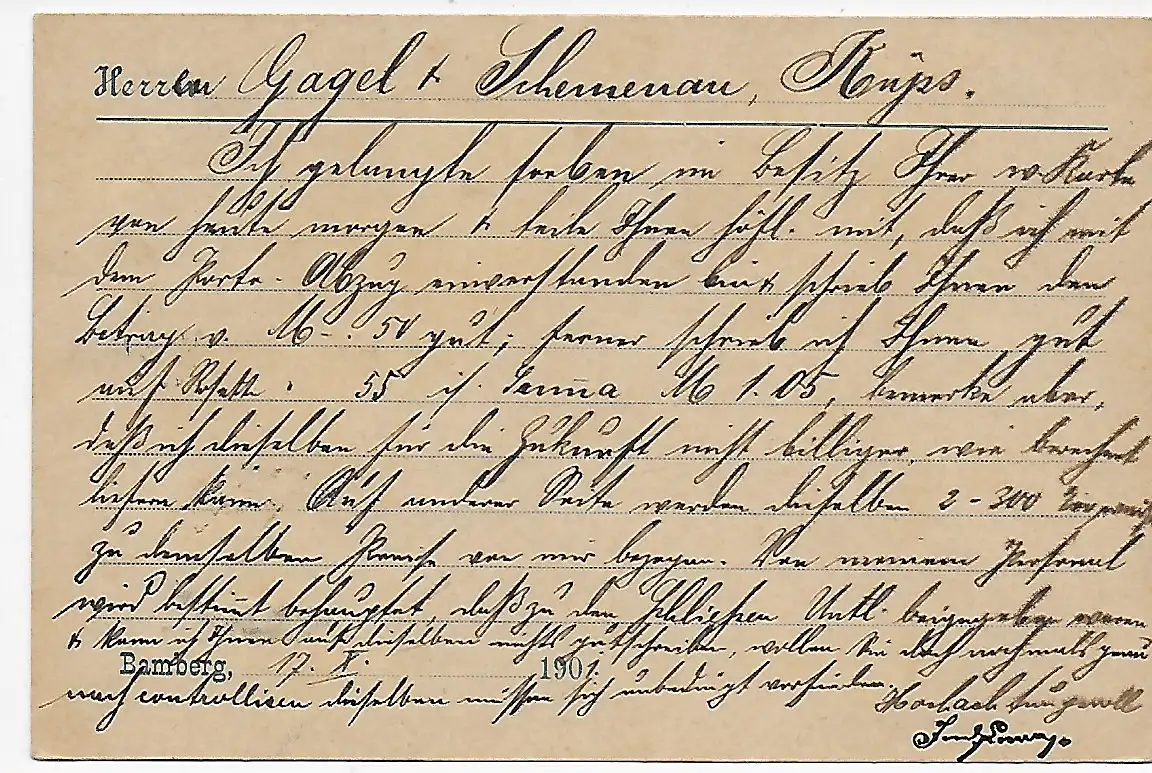 Herren Gagel & Schemenau, Küps.
Ich gelangte soeben im Besitz Ihrer w. Karte
von heute morgen & teile Ihnen höfl. mit, daß ich mit
dem Porto-Abzug einverstanden bin & schrieb Ihnen den
Betrag v. M -.50 gut; ferner schrieb ich Ihnen gut
auf 55 M 1.05, bemerke aber,
daß ich dieselben für die Zukunft nicht billiger, wie berechnet
liefern kann. Auf anderer Seite werden dieselben 2-300
zu demselben Preise von mir bezogen. Von meinem Personal
wird bestimmt behauptet, daß zu den beigegeben waren
& kann ich Ihnen auf dieselben nichts gutschreiben, wollen Sie doch nochmals genau
Bamberg, 17. X. 1901.
nach controlliren dieselben müssen sich unbedingt vorfinden.
Hochachtungsvoll